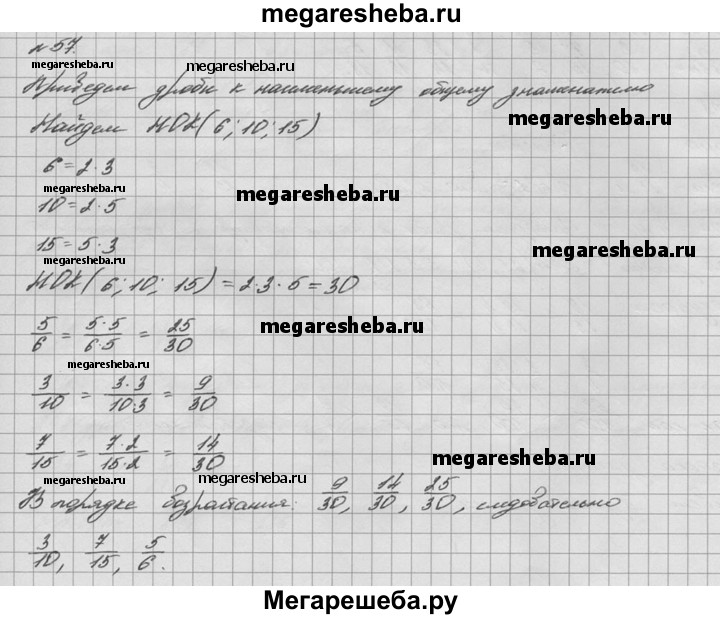 megaresheba.ru
№57.
megaresheba.ru
Приведем дроби к наименьшему общему знаменателю
megaresheba.ru
Найдем НОК(6; 10; 15)
6 = 2·3
megaresheba.ru
megaresheba.ru
10 = 2·5
15 = 5·3
megaresheba.ru
НОК(6; 10; 15) = 2·3·5 = 30
megaresheba.ru
5/6 = 5·5/6·5 = 25/30
megaresheba.ru
3/10 = 3·3/10·3 = 9/30
7/15 = 7·2/15·2 = 14/30
megaresheba.ru
megaresheba.ru
megaresheba.ru
В порядке возрастания: 9/30, 14/30, 25/30, следовательно
3/10, 7/15, 5/6.
Мегарешеба.ру